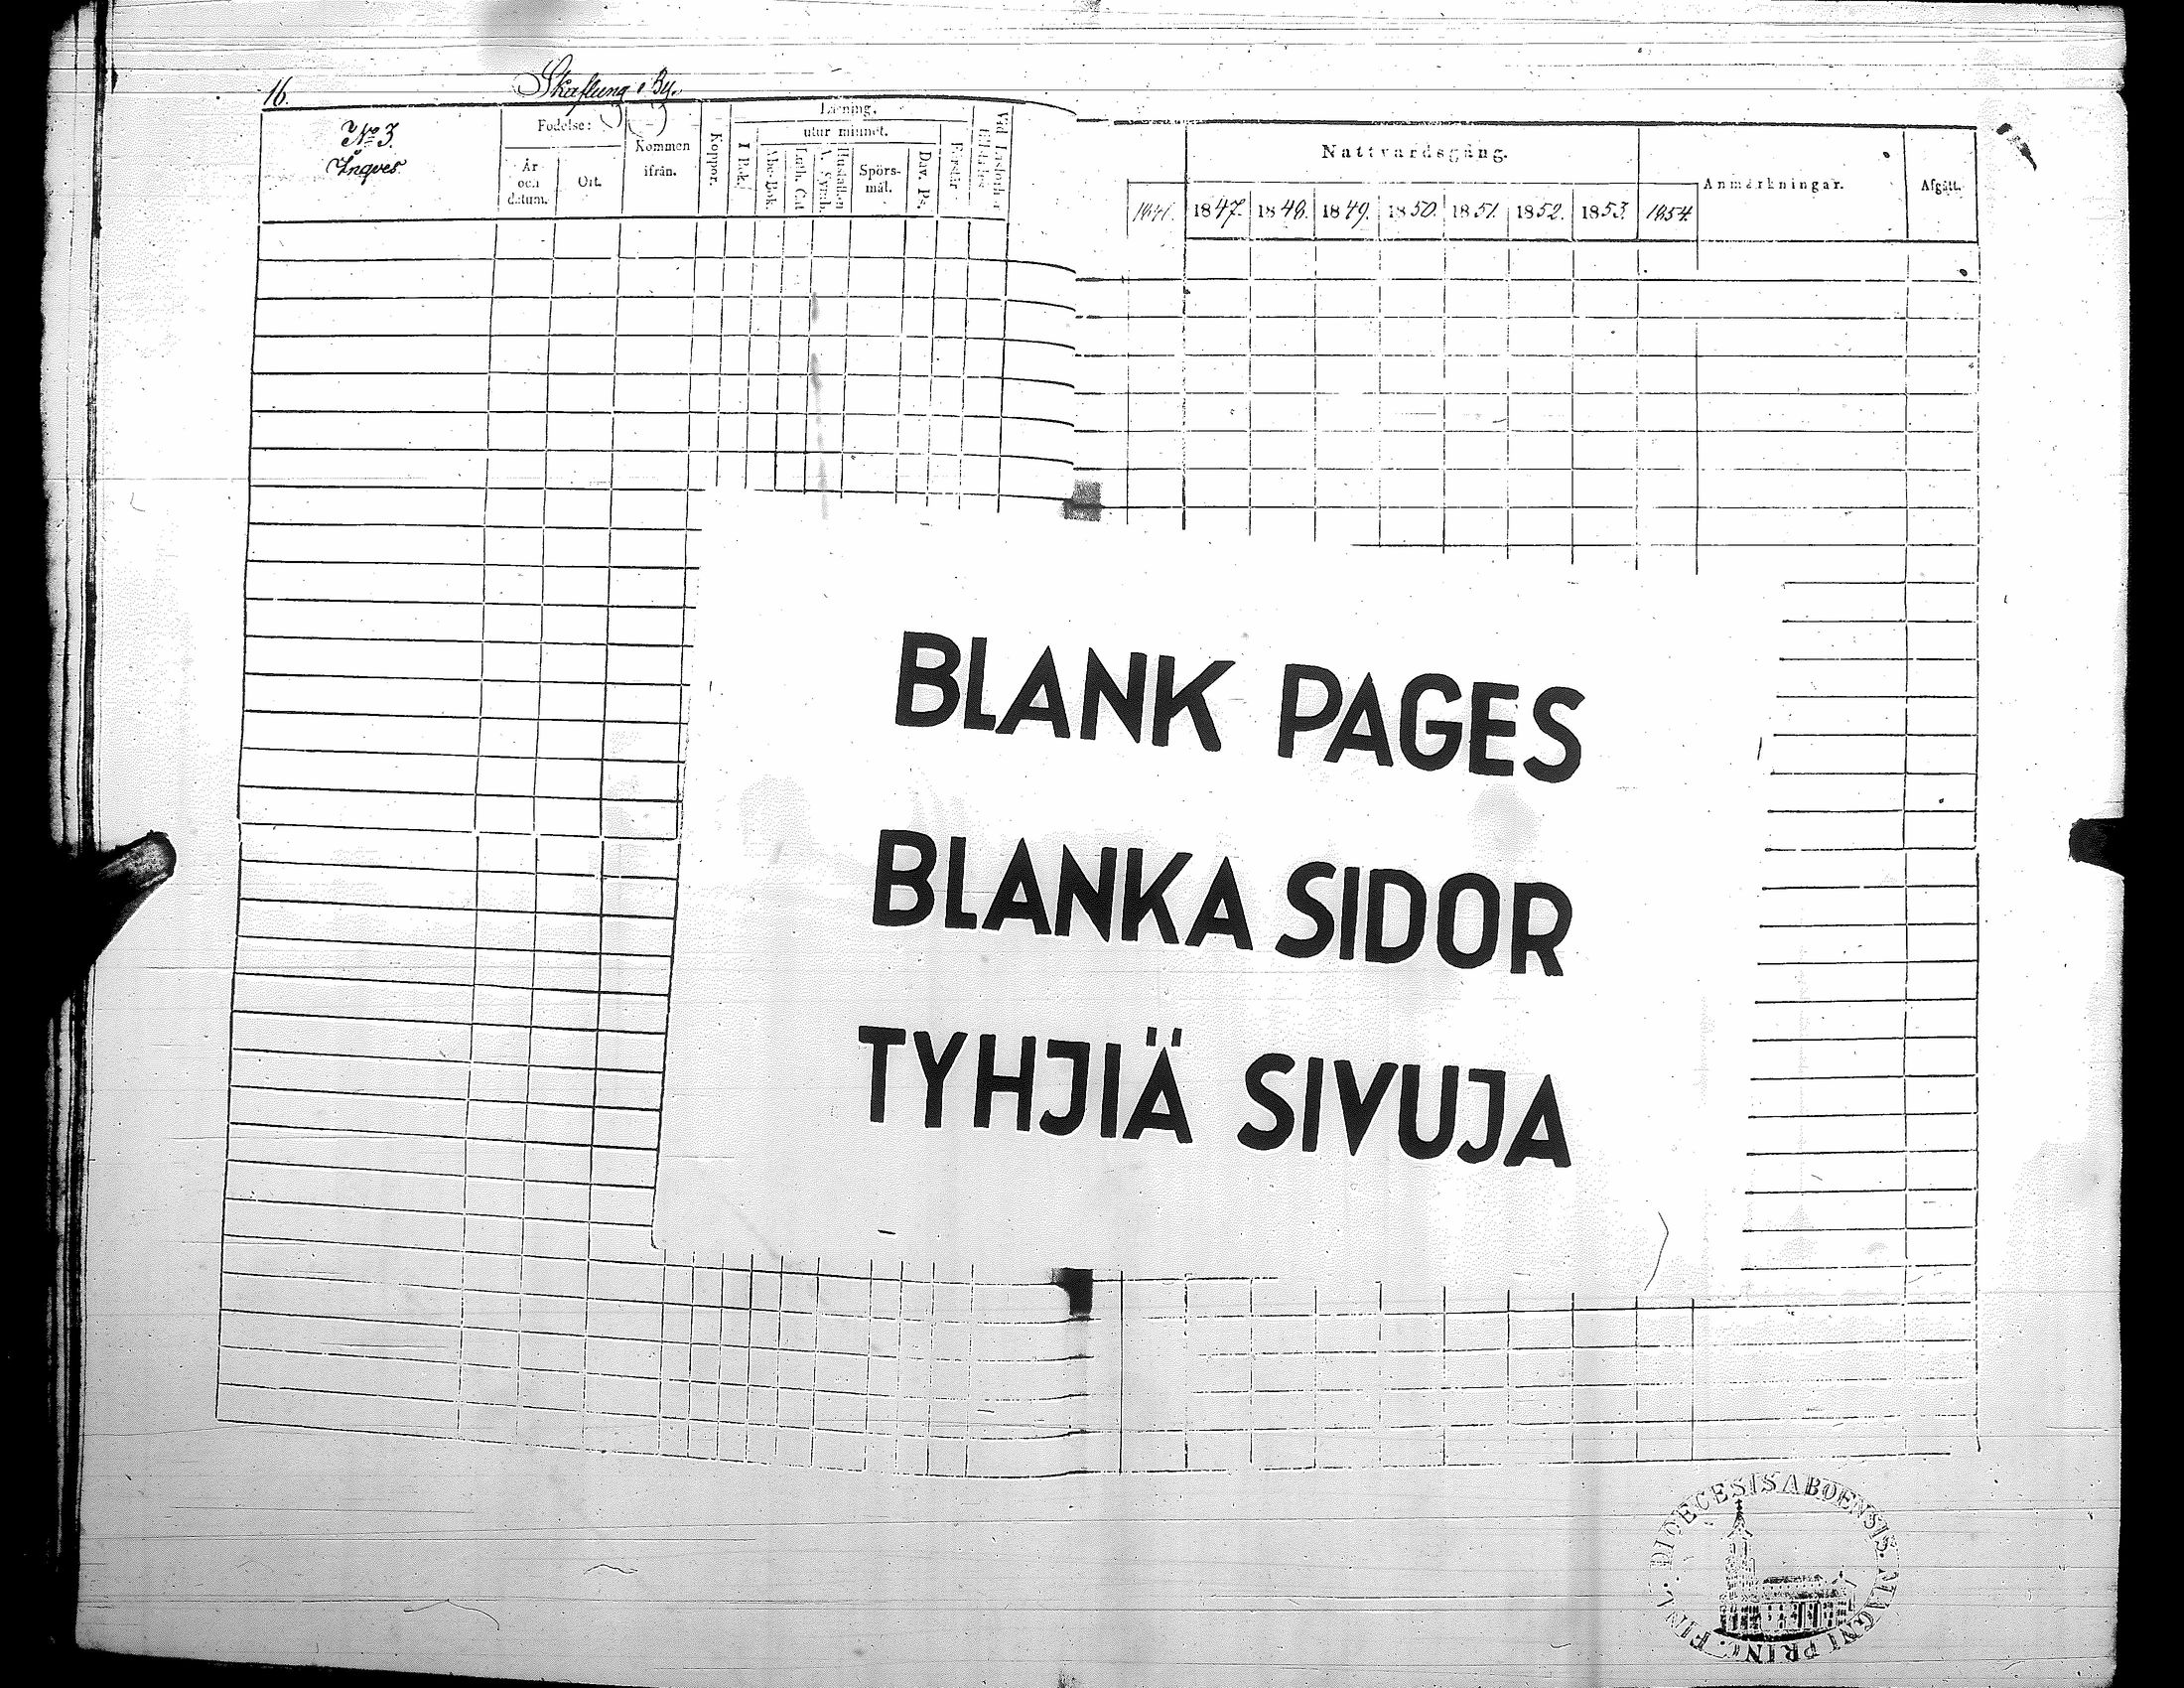 16. Skaflung By.
No 3.
Yngves
Födelse:
År
och
datum.
Ort.
Kommen
ifrån.
Koppor.
Läsning.
I Bok.
utur minnet.
Abc-Bok.
Luth. Cat.
Hustaflan
A. Symb.
Spörs-
mål.
Dav. Ps.
Förstår
Nattvardsgång.
1847. 1848. 1849. 1850. 1851. 1852. 1853. 1854.
Anmärkningar.
Afgått.
BLANK PAGES
BLANKA SIDOR
TYHJIÄ SIVUJA
DIOECESIS ABOENSIS. MAGNI PRINC. FINL.